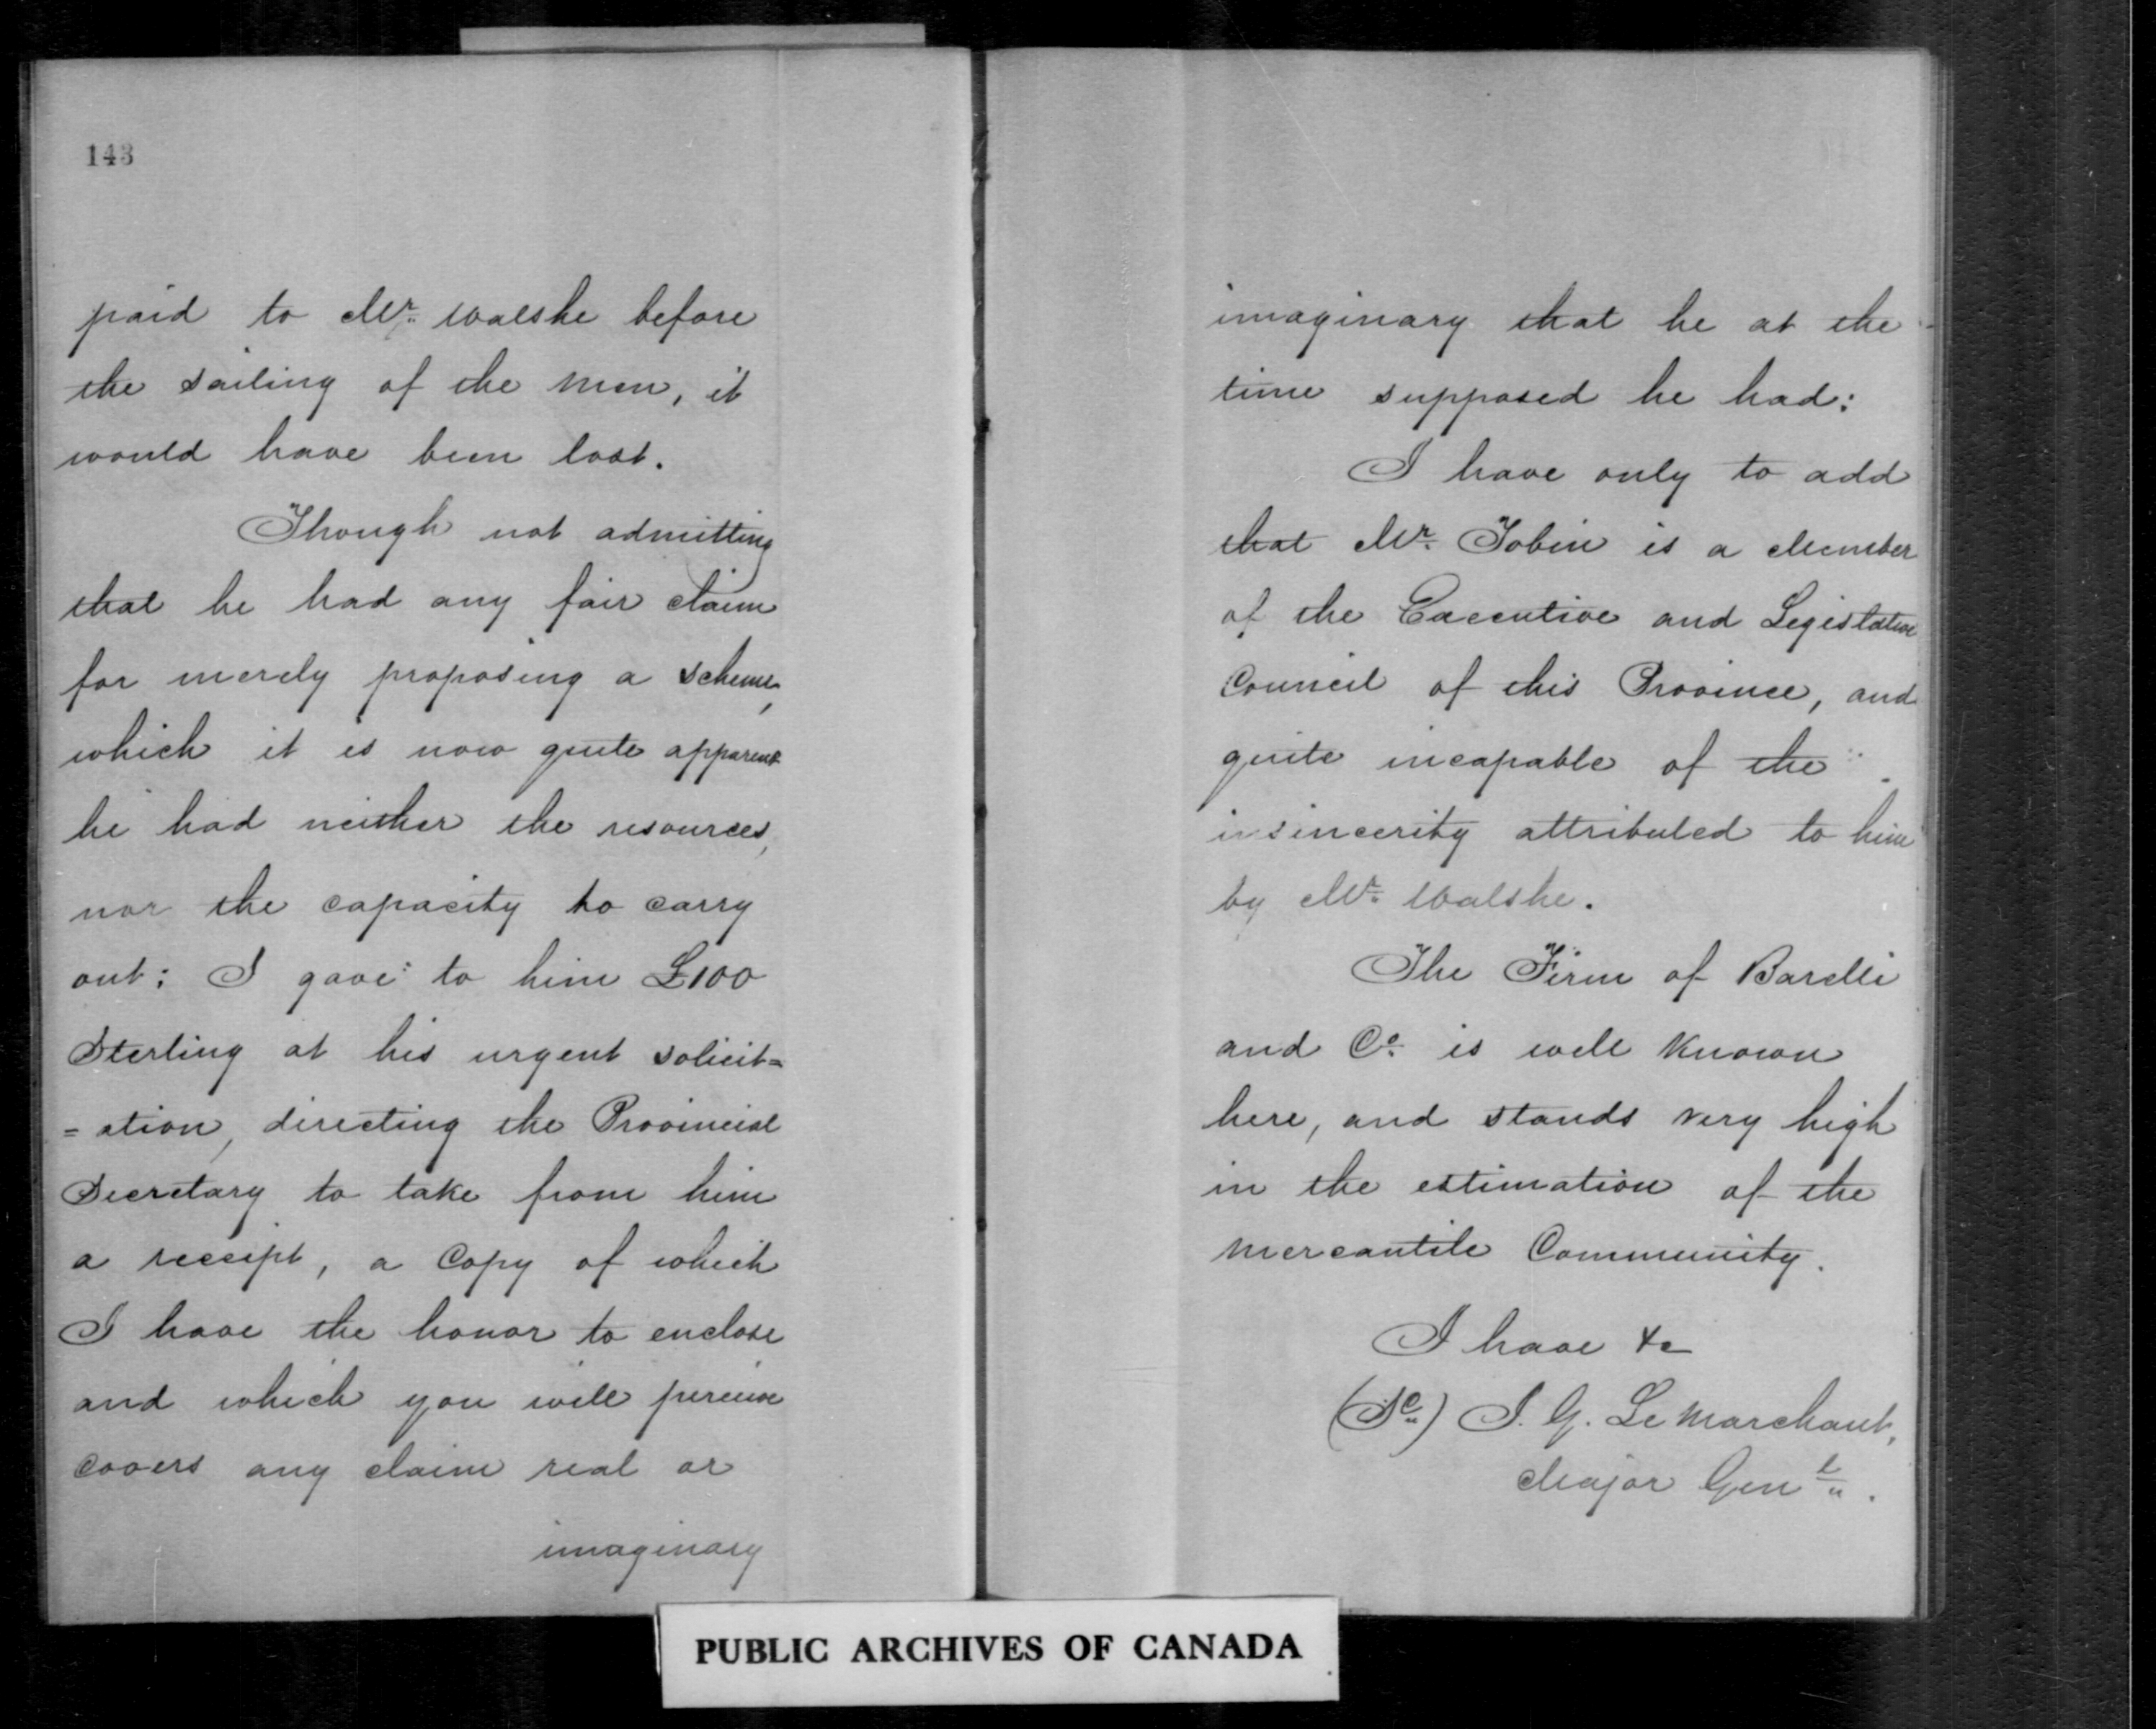 143
paid to Mr. Walshe before
the sailing of the men, it
would have been lost.
Though not admitting
that he had any fair claim
for merely proposing a scheme,
which it is now quite apparent
he had neither the resources,
nor the capacity to carry
out: I gave to him £100
Sterling at his urgent solicit=
=ation, directing the Provincial
Secretary to take from him
a receipt, a Copy of which
I have the honor to enclose
and which you will perceive
covers any claim real or
imaginary
imaginary that he at the
time supposed he had:
I have only to add
that Mr. Tobin is a Member
of the Executive and Legislative
Council of this Province, and
quite incapable of the
insincerity attributed to him
by Mr. Walshe.
The Firm of Barelli
and Co. is well known
here, and stands very high
in the estimation of the
Mercantile Community.
I have &c
J. G. Le Marchant,
Major Genl.
PUBLIC ARCHIVES OF CANADA